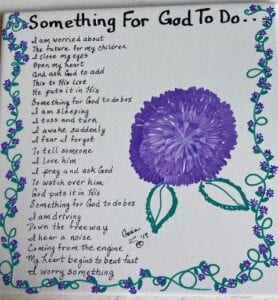 Something For God To Do..
I am worried about
The future for my children
I close my eyes
Open my heart
And ask God to add
This to His list
He puts it in His
Something for God to do box
I am sleeping
I toss and turn
I awake suddenly
I fear I forgot
To tell someone
I love him
I pray and ask God
To watch over him
God puts it in His
Something for God to do box
I am driving
Down the freeway
I hear a noise
Coming from the engine
My heart begins to beat fast
I worry something
'19